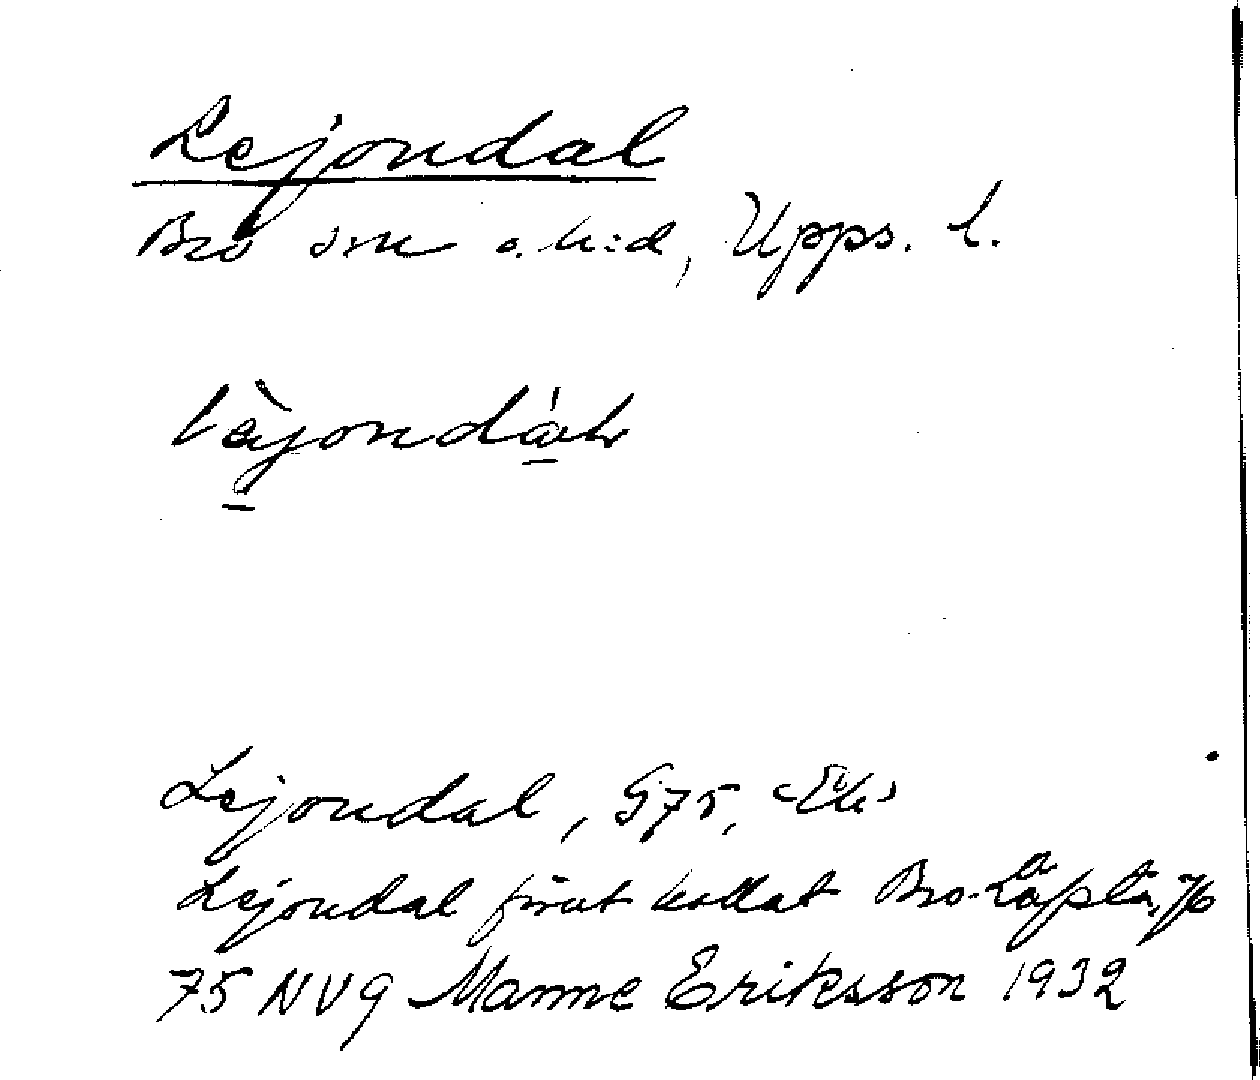 Lejondal
Bro sn o. h:d, Upps. l.
Lejondal, G75, Ek
Lejondal förut kallat Bro-Låsta, 76
75 NV9 Manne Eriksson 1932